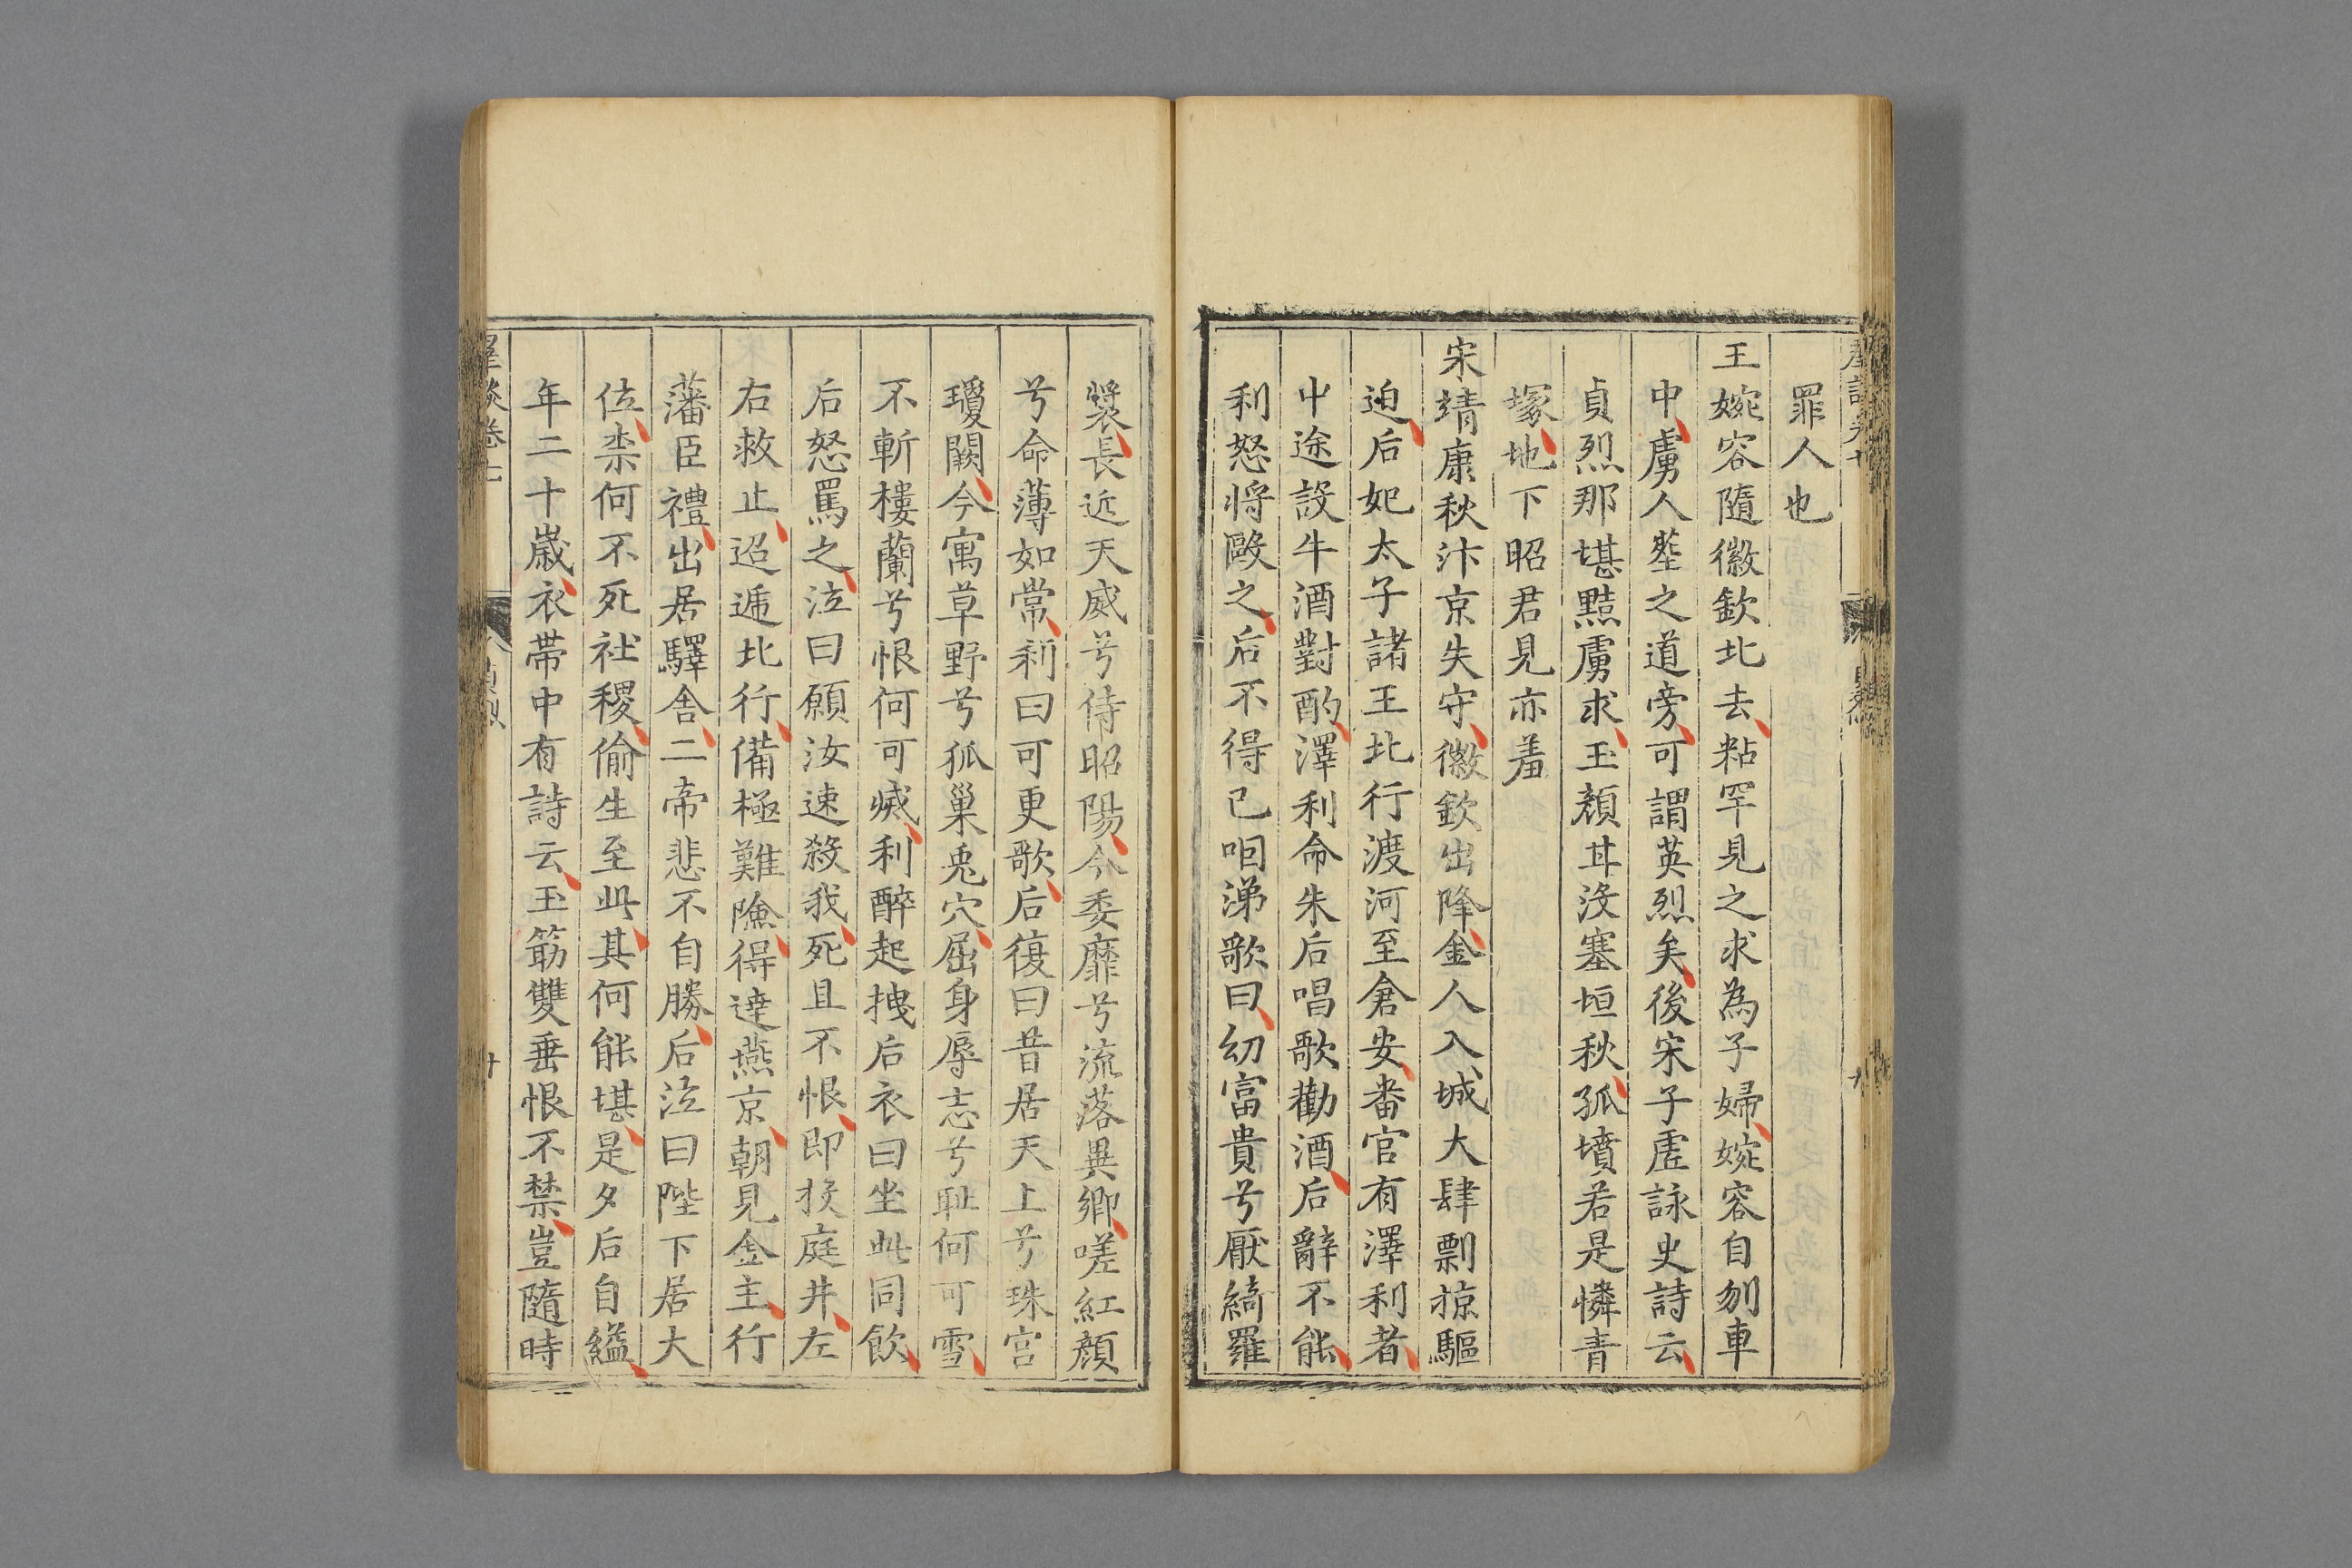 罪人也
王婉容隨徽欽北去粘罕見之求為子婦婉容自刎車
中虜人塟之道旁可謂英烈矣後宋子虛詠史詩云
貞烈那堪黠虜求玉顏甘沒塞垣秋孤墳若是憐青
塚地下昭君見亦羞
宋靖康秋汴京失守徽欽出降金人入城大肆剽掠驅
迫后妃太子諸王北行渡河至倉安畨官有澤利者
中途設牛酒對酌澤利命朱后唱歌勸酒后辭不能
利怒將毆之后不得已呬涕歌曰幼富貴兮厭綺羅
裳長近天威兮侍昭陽今委靡兮流落異鄉嗟紅顏
兮命薄如常利曰可更歌后復曰昔居天上兮珠宫
瓊闕今寓草野兮孤巢兎穴屈身辱志兮耻何可雪
不斬樓蘭兮恨何可滅利醉起拽后衣曰坐此同飲
后怒罵之泣曰願汝速殺我死且不恨即投庭井左
右救止迢逓北行備極難險得達燕京朝見金主行
藩臣禮出居驛舍二帝悲不自勝后泣曰陛下居大
位柰何不死社稷偷生至此其何能堪是夕后自縊
年二十歲衣帶中有詩云玉筯雙垂恨不禁豈隨時
卷七